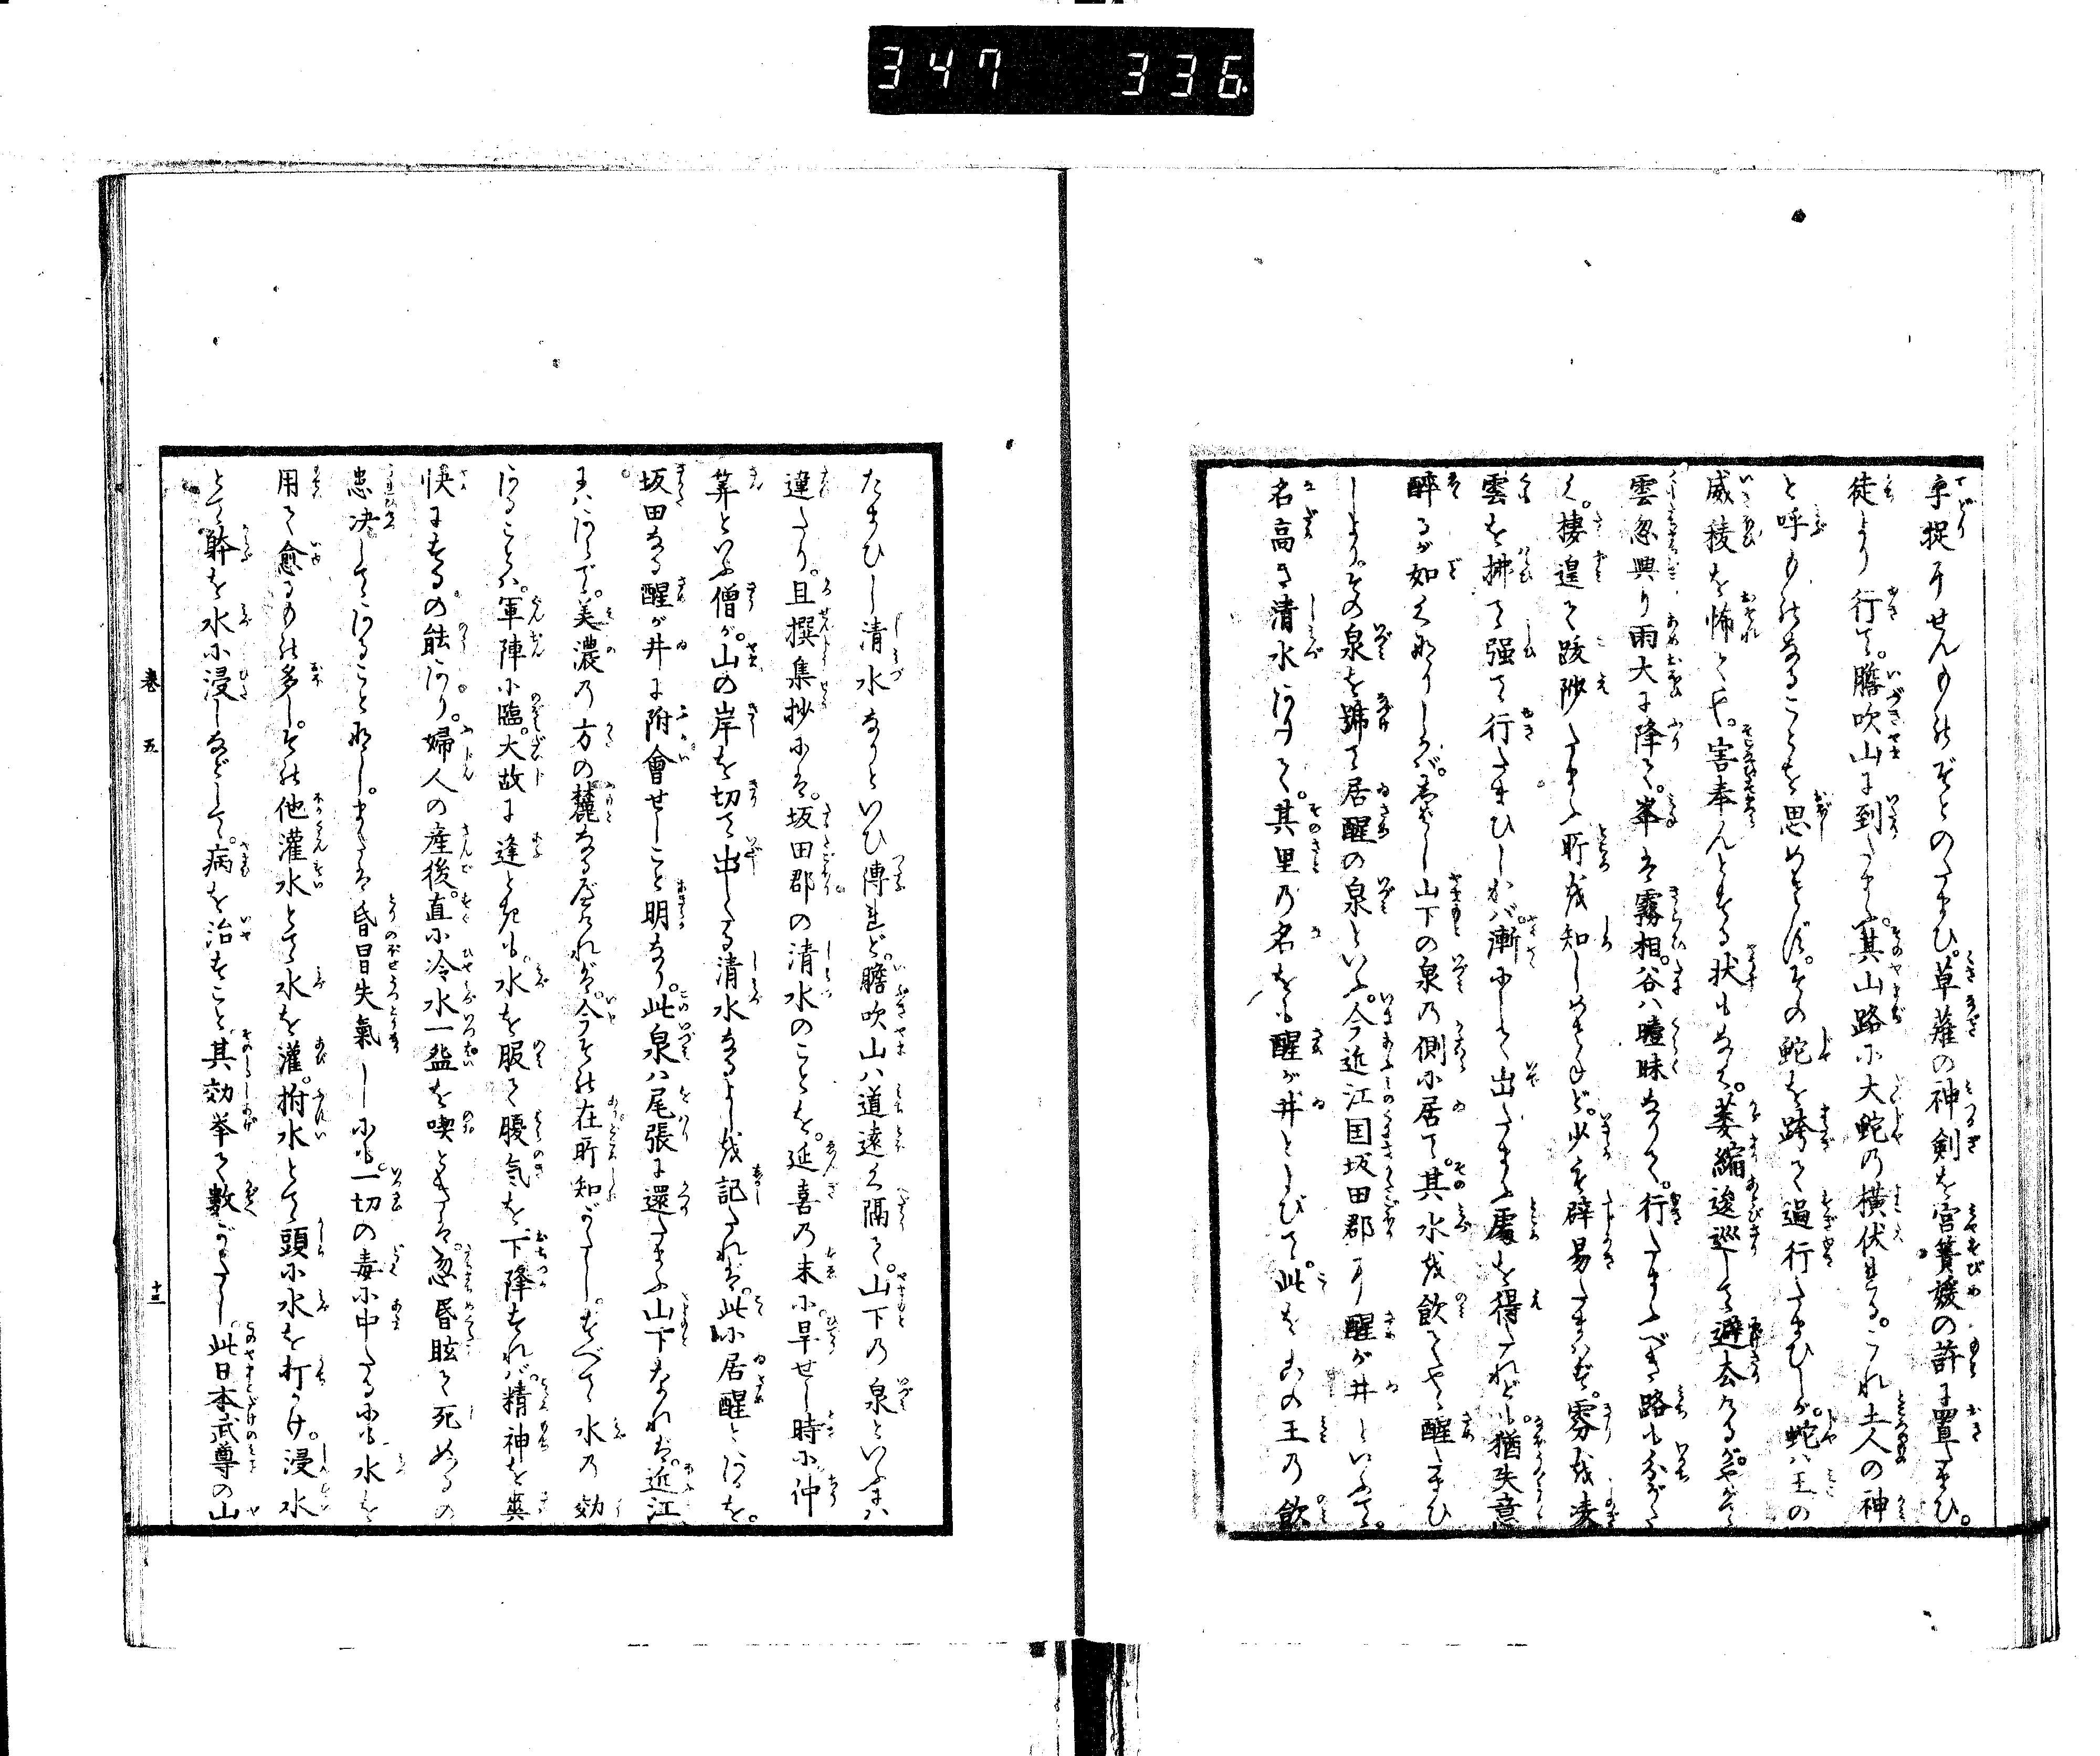 347 336.
手捉にせんものぞとのたまひ。草薙の神剣を宮簀媛の許に置たまひ。
徒より行て。膽吹山に到たまふ。其山路に大蛇の横伏せる。これ土人の神
と呼ものなることを思めさず。その蛇を跨て過行たまひしが。蛇ハ王の
威稜を怖とや。害奉んとする状もなく。萎縮逡巡して避去けるが。やがて
雲忽興り雨大に降て。峯は霧相。谷ハ曀昧なりて。行たまふべき路も分がた
く。棲遑て跋渉たまふ所を知しめさねど。少も辟易たまハず。雰を凌
雲を拂て強て行たまひしかバ。漸にして出たまふ處を得たれども。猶失意
醉るが如くなりしかバ。山下の泉の側に居て。其水を飲てやゝ醒たまひ
しより。その泉を號て居醒の泉といふ。今近江国坂田郡に醒が井といふて。
名高き清水ありて。其里の名をも醒が井とよびて。此をかの王の飲
たまひし清水なりといひ傳れど。膽吹山ハ道遠く隔て。山下の泉といふにハ
違たり。且撰集抄には。坂田郡の清水のことを。延喜の末に旱せし時に仲
算といふ僧が。山の岸を切て出したる清水なるよし記たれば。此に居醒とあるを。
坂田なる醒が井に附會せしこと明なり。此泉ハ尾張に還たまふ山下なれば。近江
にハあらで。美濃の方の麓なるべければ。今その在所知がたし。すべて水の効
あることハ。軍陣に臨。大故に逢ときも。水を服て腹気を下降すれバ精神を爽
快にするの能あり。婦人の産後。直に冷水一盃を喫ときは。忽昏眩て死ぬるの
患決してあることなし。または昏冒失氣しにも。一切の毒に中たるにも。水を
用て愈るもの多し。その他灌水とて水を灌。拊水とて頭に水を打かけ。浸水
とて躰を水に浸しなどして。病を治すこと。其効挙て数がたし。此日本武尊の山
巻五
十三